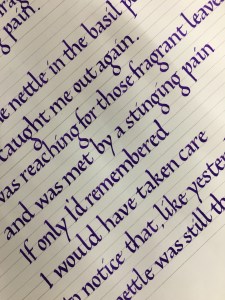 g pain.
nettle in the basil
caught me out again.
was reaching for those fragrant leave
and was met by a stinging pain
If only I'd remembered
I would have taken care
notice that, like yester
nettle was still th